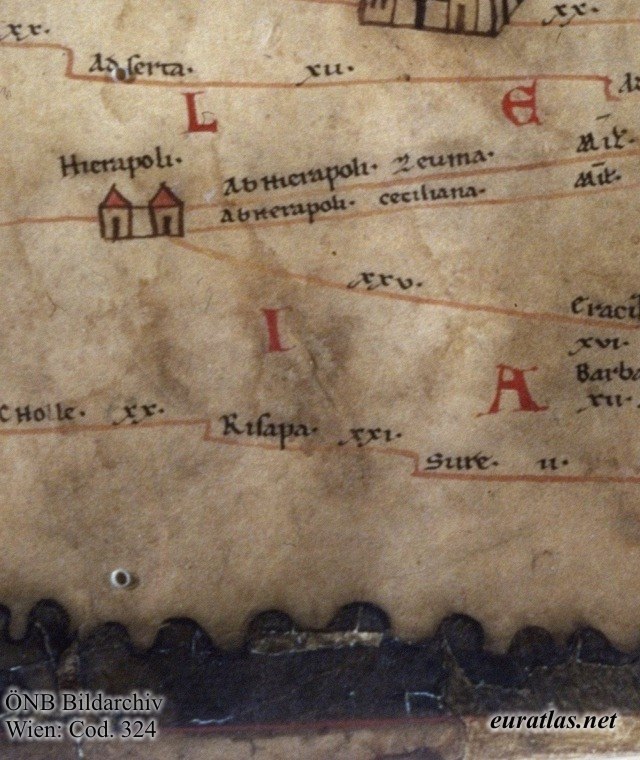 xx.
xx.
Ad serta.
xii.
Ad
L
E
Hierapoli.
Ab Hierapoli. Zeuma. Mil.
Ab Herapoli. ceciliana. Mil.
xxv.
Eraci
I
xvi.
A
Barba
xii.
c Holle. xx.
Risapa. xxi.
Sure. ii.
ÖNB Bildarchiv
Wien: Cod. 324
euratlas.net